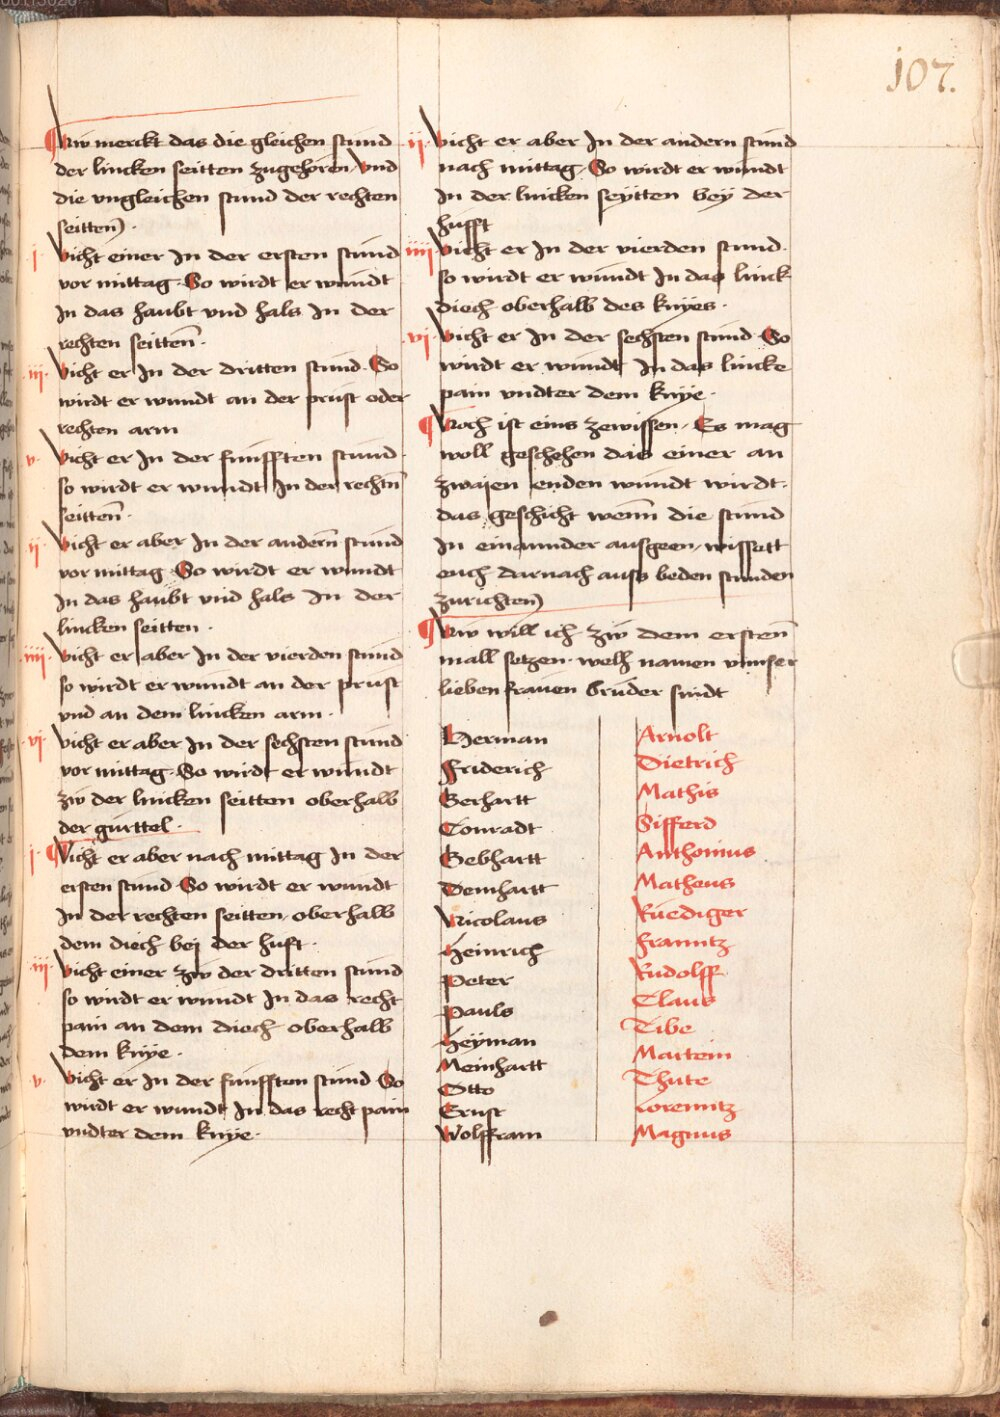 107.
Nw merckt das die gleichen stund
der lincken seitten zugehören, Vnd
die vngleichen stund der rechten
seitten).
j Vicht einer In der ersten stund
vor mittag. So wirdt er wundt
In das haubt vnd hals In der
rechten seitten̄.
.iij. Vicht er In der dritten stund. So
wirdt er wundt an der prust oder
rechten arm
v. Vicht er In der funfften stund.
so wirdt er wundt In der rechtn̄
seitten̄.
ij Vicht er aber In der andern̄ stund
vor mittag So wirdt er wundt
In das haubt vnd hals In der
lincken seitten.
.iiij. Vicht er aber In der vierden stund
so wirdt er wundt an der prust
vnd an dem lincken arm.
.vj. Vicht er aber In der sechsten stund
vor mittag. So wirdt er wundt
zw der lincken seitten oberhalb
der gurttel.
j. Vicht er aber nach mittag In der
ersten stund So wirdt er wundt
In der rechten seitten oberhalb
dem diech bei der huft.
.iij. Vicht einer zw der dritten stund
so wirdt er wundt In das recht
pain an dem diech oberhalb
dem knÿe.
v. Vicht er In der funfften stund So
wirdt er wundt In das recht pain
vndter dem knÿe.
ij. Vicht er aber In der andern stund
nach mittag. So wirdt er wundt
In der lincken seytten bey der
hufft
iiij. Vicht er In der vierden stund.
so wirdt er wundt In das linck
diech oberhalb des knÿes.
.vj. Vicht er In der sechsten stund. So
wirdt er wundt In das lincke
pain vndter dem knÿe.
Noch ist eins zewissen. Es mag
woll geschehen das einer an
zwaien enden wundt wirdt.
das geschicht wenn̄ die stund
In einannder ausgeen, wissett
euch darnach aufs beden stunden
zurichten)
Nw will ich zw dem ersten̄
mall setzen. welh namen vnnser
lieben frauen bruder sindt
Herman
Friderich
Gerhartt
Conradt
Gebhartt
Deinhartt
Nicolaus
Heinrich
Peter
Pauls
Heÿman
Meinhartt
Otto
Ernst
Wolffram
Arnolt
Dietrich
Mathis
Sifferd
Anthonius
Matheus
Ruediger
Franntz
Rudolff
Claus
Tibe
Martein
Thute
Lorenntz
Magnus